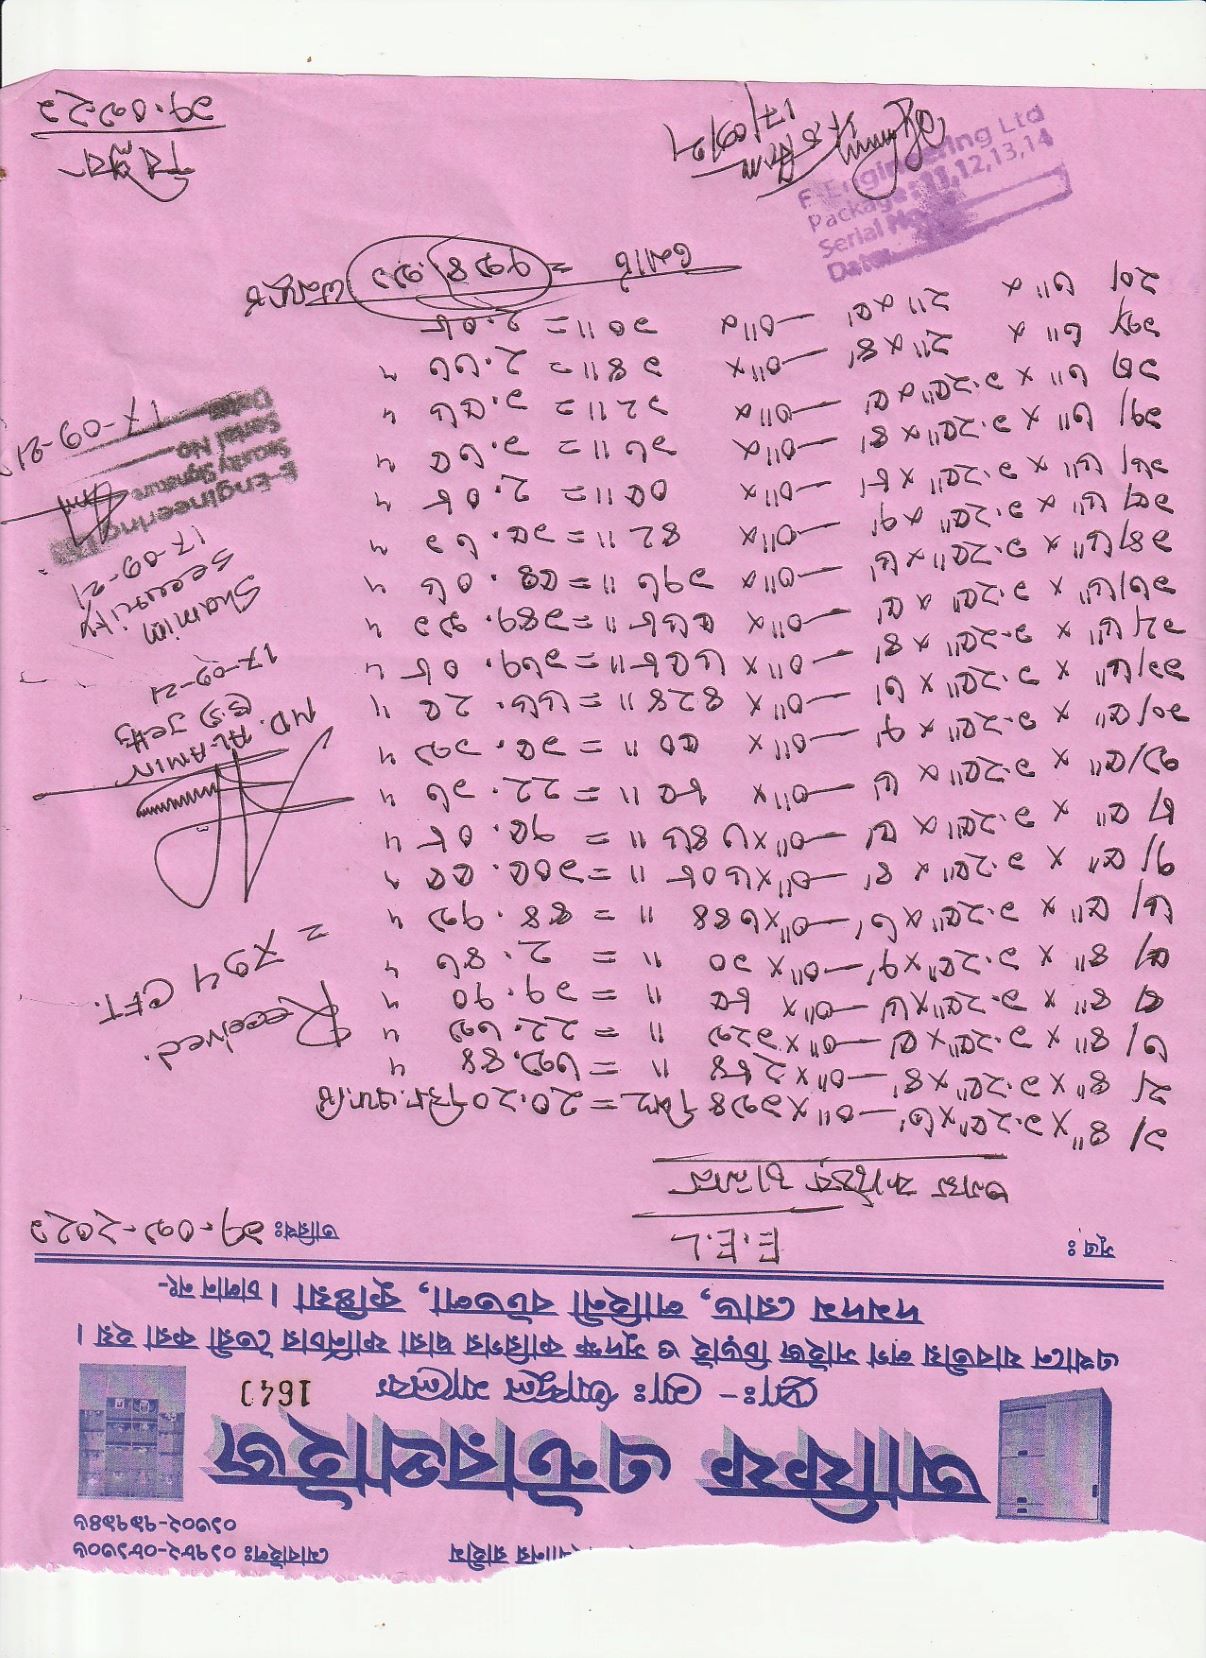 রাহীম
মোবাইলঃ ০১৭৮২-০৮১৩০৬
০১৩০২-৭৯৭৯৪৬
আফিফ এন্টারপ্রাইজ
প্রোঃ- মোঃ আব্দুল মালেক
164
এখানে যাবতীয় লগ সাইজ চিড়াই ও সুদক্ষ কারিগর দ্বারা ফার্নিচার তৈরী করা হয়।
দমদম রোড, লাহিনী বটতলা, কুষ্টিয়া। চালান নং-
সূত্র ঃ
E.E.L
তারিখঃ ১৭-০৯-২০২১
আম কাঠের চালান
১/ ৪" x ১.২৫" x ৩' —০" x ১৯৪ পিছ = ২০.২০ সি.এফ.টি
২/ ৪" x ১.২৫" x ৪' —০" x ২৮৪ " = ৩৯.৪৪ "
৩/ ৪" x ১.২৫" x ৫' —০" x ১২৯ " = ২২.৩৯ "
৪/ ৪" x ১.২৫" x ৬' —০" x ৮৫ " = ১৭.৭০ "
৫/ ৪" x ১.২৫" x ৭' —০" x ১০ " = ২.৪৩ "
৬/ ৫" x ১.২৫" x ৩' —০" x ৩৪৪ " = ৪৪.৭৯ "
৭/ ৫" x ১.২৫" x ৪' —০" x ৬০৮ " = ১০৫.৫৫ "
৮/ ৫" x ১.২৫" x ৫' —০" x ৩৪৬ " = ৭৫.০৮ "
৯/ ৫" x ১.২৫" x ৬' —০" x ৮৫ " = ২২.১৩ "
১০/ ৫" x ১.২৫" x ৭' —০" x ৫০ " = ১৫.১৯ "
১১/ ৬" x ১.২৫" x ৩' —০" x ৪২৪ " = ৬৬.২৫ "
১২/ ৬" x ১.২৫" x ৪' —০" x ৬৫৮ " = ১৩৭.০৮ "
১৩/ ৬" x ১.২৫" x ৫' —০" x ৫৬৮ " = ১৪৭.৯১ "
১৪/ ৬" x ১.২৫" x ৬' —০" x ১৭৩ " = ৫৪.০৬ "
১৫/ ৬" x ১.২৫" x ৭' —০" x ৪২ " = ১৫.৩১ "
১৬/ ৬" x ১.২৫" x ৮' —০" x ০৫ " = ২.০৮ "
১৭/ ৩" x ১.২৫" x ৪' —০" x ১৩ " = ১.৩৫ "
১৮/ ৩" x ১.২৫" x ৫' —০" x ১২ " = ১.৫৬ "
১৯/ ৩" x ২" x ৪' —০" x ১৪ " = ২.৩৩ "
২০/ ৩" x ২" x ৫' —০" x ১০ " = ২.০৮
মোট = ৭৯৪.৯১ ঘনফুট
Received.
= 794 CFT.
MD. AL-AMIN
(S.S) Jetty
17-09-21
Shamim
security
17-09-21
E-Engineering Ltd
Security Signature
Serial No
Date
17-09-21
E-Engineering Ltd
Package :11,12,13,14
Serial No
Date
17/09/21
বিপ্লব
১৭.০৯.২১